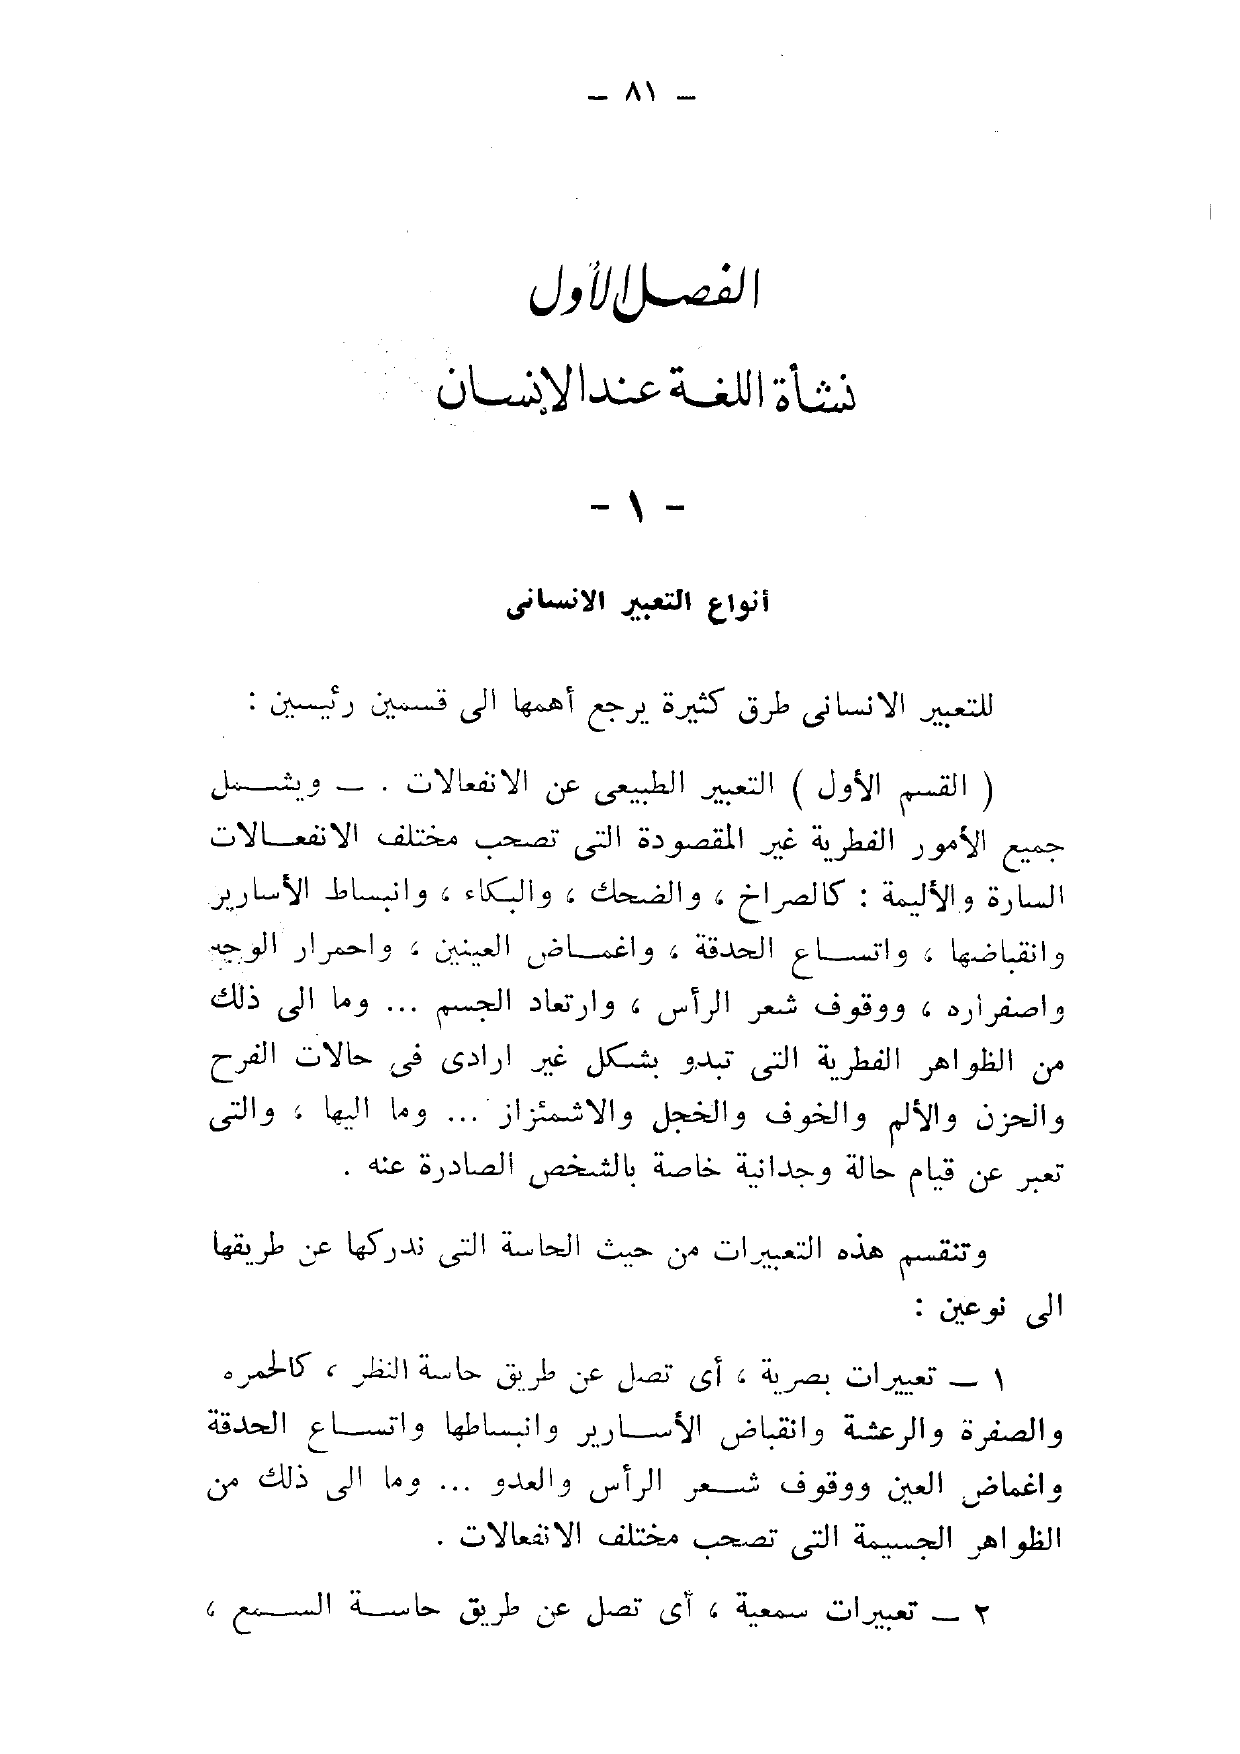 — ٨١ —
الفصل الأول
نشأة اللغة عند الإنسان
- ١ -
أنواع التعبير الانسانى
للتعبير الانسانى طرق كثيرة يرجع أهمها الى قسمين رئيسين :
( القسم الأول ) التعبير الطبيعى عن الانفعالات . — ويشمل
جميع الأمور الفطرية غير المقصودة التى تصحب مختلف الانفعالات
السارة والأليمة : كالصراخ ، والضحك ، والبكاء ، وانبساط الأسارير
وانقباضها ، واتساع الحدقة ، واغماض العينين ، واحمرار الوجه
واصفراره ، ووقوف شعر الرأس ، وارتعاد الجسم ... وما الى ذلك
من الظواهر الفطرية التى تبدو بشكل غير ارادى فى حالات الفرح
والحزن والألم والخوف والخجل والاشمئزاز ... وما اليها ، والتى
تعبر عن قيام حالة وجدانية خاصة بالشخص الصادرة عنه .
وتنقسم هذه التعبيرات من حيث الحاسة التى ندركها عن طريقها
الى نوعين :
١ — تعبيرات بصرية ، أى تصل عن طريق حاسة النظر ، كالحمره
والصفرة والرعشة وانقباض الأسارير وانبساطها واتساع الحدقة
واغماض العين ووقوف شعر الرأس والعدو ... وما الى ذلك من
الظواهر الجسيمة التى تصحب مختلف الانفعالات .
٢ — تعبيرات سمعية ، أى تصل عن طريق حاسة السمع ،